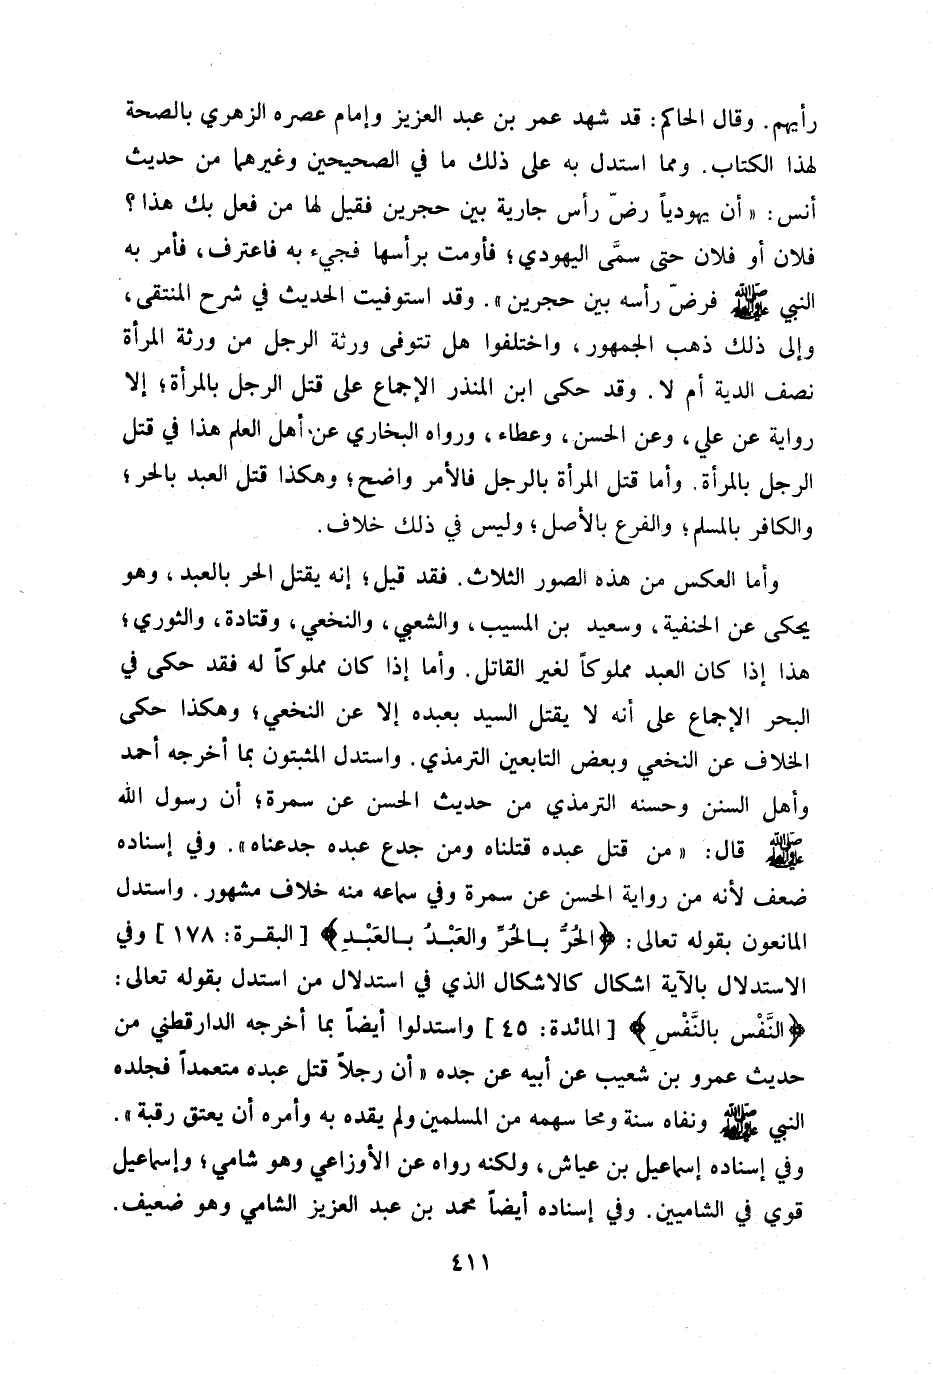 رأيهم. وقال الحاكم: قد شهد عمر بن عبد العزيز وإمام عصره الزهري بالصحة
لهذا الكتاب. ومما استدل به على ذلك ما في الصحيحين وغيرهما من حديث
أنس: «أن يهودياً رضّ رأس جارية بين حجرين فقيل لها من فعل بك هذا؟
فلان أو فلان حتى سمَّى اليهودي؛ فأومت برأسها فجيء به فاعترف، فأمر به
النبي ﷺ فرضّ رأسه بين حجرين». وقد استوفيت الحديث في شرح المنتقى،
وإلى ذلك ذهب الجمهور، واختلفوا هل تتوفى ورثة الرجل من ورثة المرأة
نصف الدية أم لا. وقد حكى ابن المنذر الإجماع على قتل الرجل بالمرأة؛ إلا
رواية عن علي، وعن الحسن، وعطاء، ورواه البخاري عن أهل العلم هذا في قتل
الرجل بالمرأة. وأما قتل المرأة بالرجل فالأمر واضح؛ وهكذا قتل العبد بالحر؛
والكافر بالمسلم؛ والفرع بالأصل؛ وليس في ذلك خلاف.
وأما العكس من هذه الصور الثلاث. فقد قيل؛ إنه يقتل الحر بالعبد، وهو
يحكى عن الحنفية، وسعيد بن المسيب، والشعبي، والنخعي، وقتادة، والثوري؛
هذا إذا كان العبد مملوكاً لغير القاتل. وأما إذا كان مملوكاً له فقد حكى في
البحر الإجماع على أنه لا يقتل السيد بعبده إلا عن النخعي؛ وهكذا حكى
الخلاف عن النخعي وبعض التابعين الترمذي. واستدل المثبتون بما أخرجه أحمد
وأهل السنن وحسنه الترمذي من حديث الحسن عن سمرة؛ أن رسول الله
ﷺ قال: «من قتل عبده قتلناه ومن جدع عبده جدعناه». وفي إسناده
ضعف لأنه من رواية الحسن عن سمرة وفي سماعه منه خلاف مشهور. واستدل
المانعون بقوله تعالى: ﴿الحُرُّ بـالحُرِّ والعَبْـدُ بـالعَبْـدِ﴾ [البقـرة: ١٧٨] وفي
الاستدلال بالآية اشكال كالاشكال الذي في استدلال من استدل بقوله تعالى:
﴿النَّفْس بالنَّفْسِ﴾ [المائدة: ٤٥] واستدلوا أيضاً بما أخرجه الدارقطني من
حديث عمرو بن شعيب عن أبيه عن جده «أن رجلاً قتل عبده متعمداً فجلده
النبي ﷺ ونفاه سنة ومحا سهمه من المسلمين ولم يقده به وأمره أن يعتق رقبة».
وفي إسناده إسماعيل بن عياش، ولكنه رواه عن الأوزاعي وهو شامي؛ وإسماعيل
قوي في الشاميين. وفي إسناده أيضاً محمد بن عبد العزيز الشامي وهو ضعيف.
٤١١